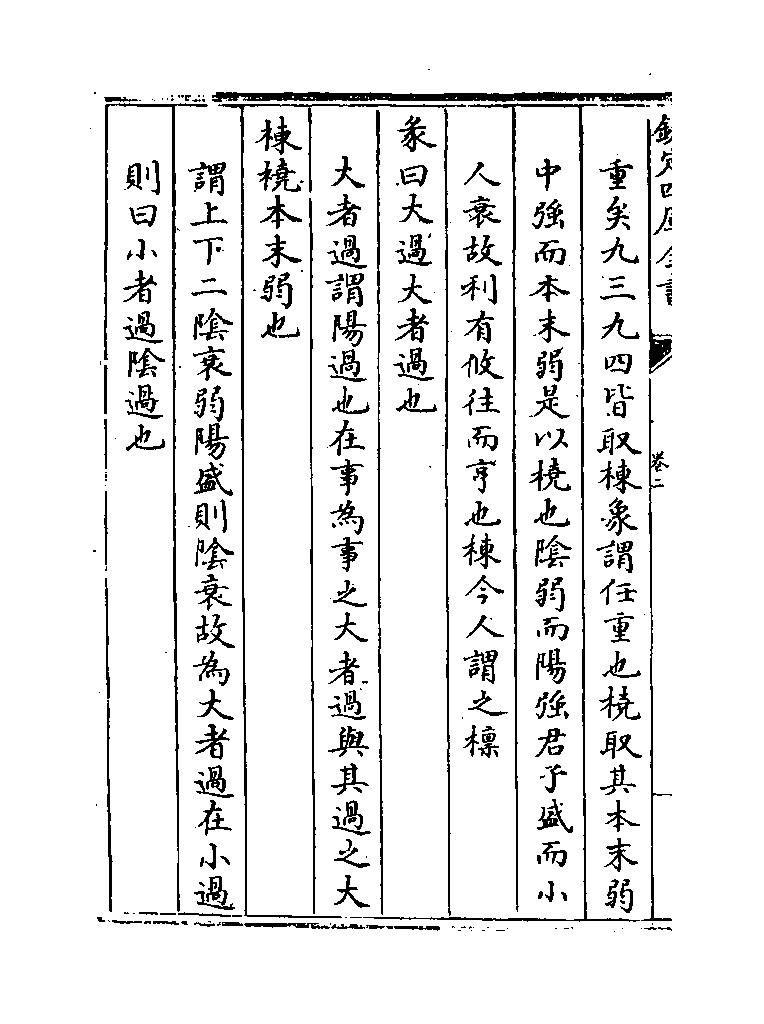 欽定四庫全書
卷二
重矣九三九四皆取棟象謂任重也橈取其本末弱
中強而本末弱是以橈也陰弱而陽強君子盛而小
人衰故利有攸往而亨也棟今人謂之檁
彖曰大過大者過也
大者過謂陽過也在事為事之大者過與其過之大
棟橈本末弱也
謂上下二陰衰弱陽盛則陰衰故為大者過在小過
則曰小者過陰過也